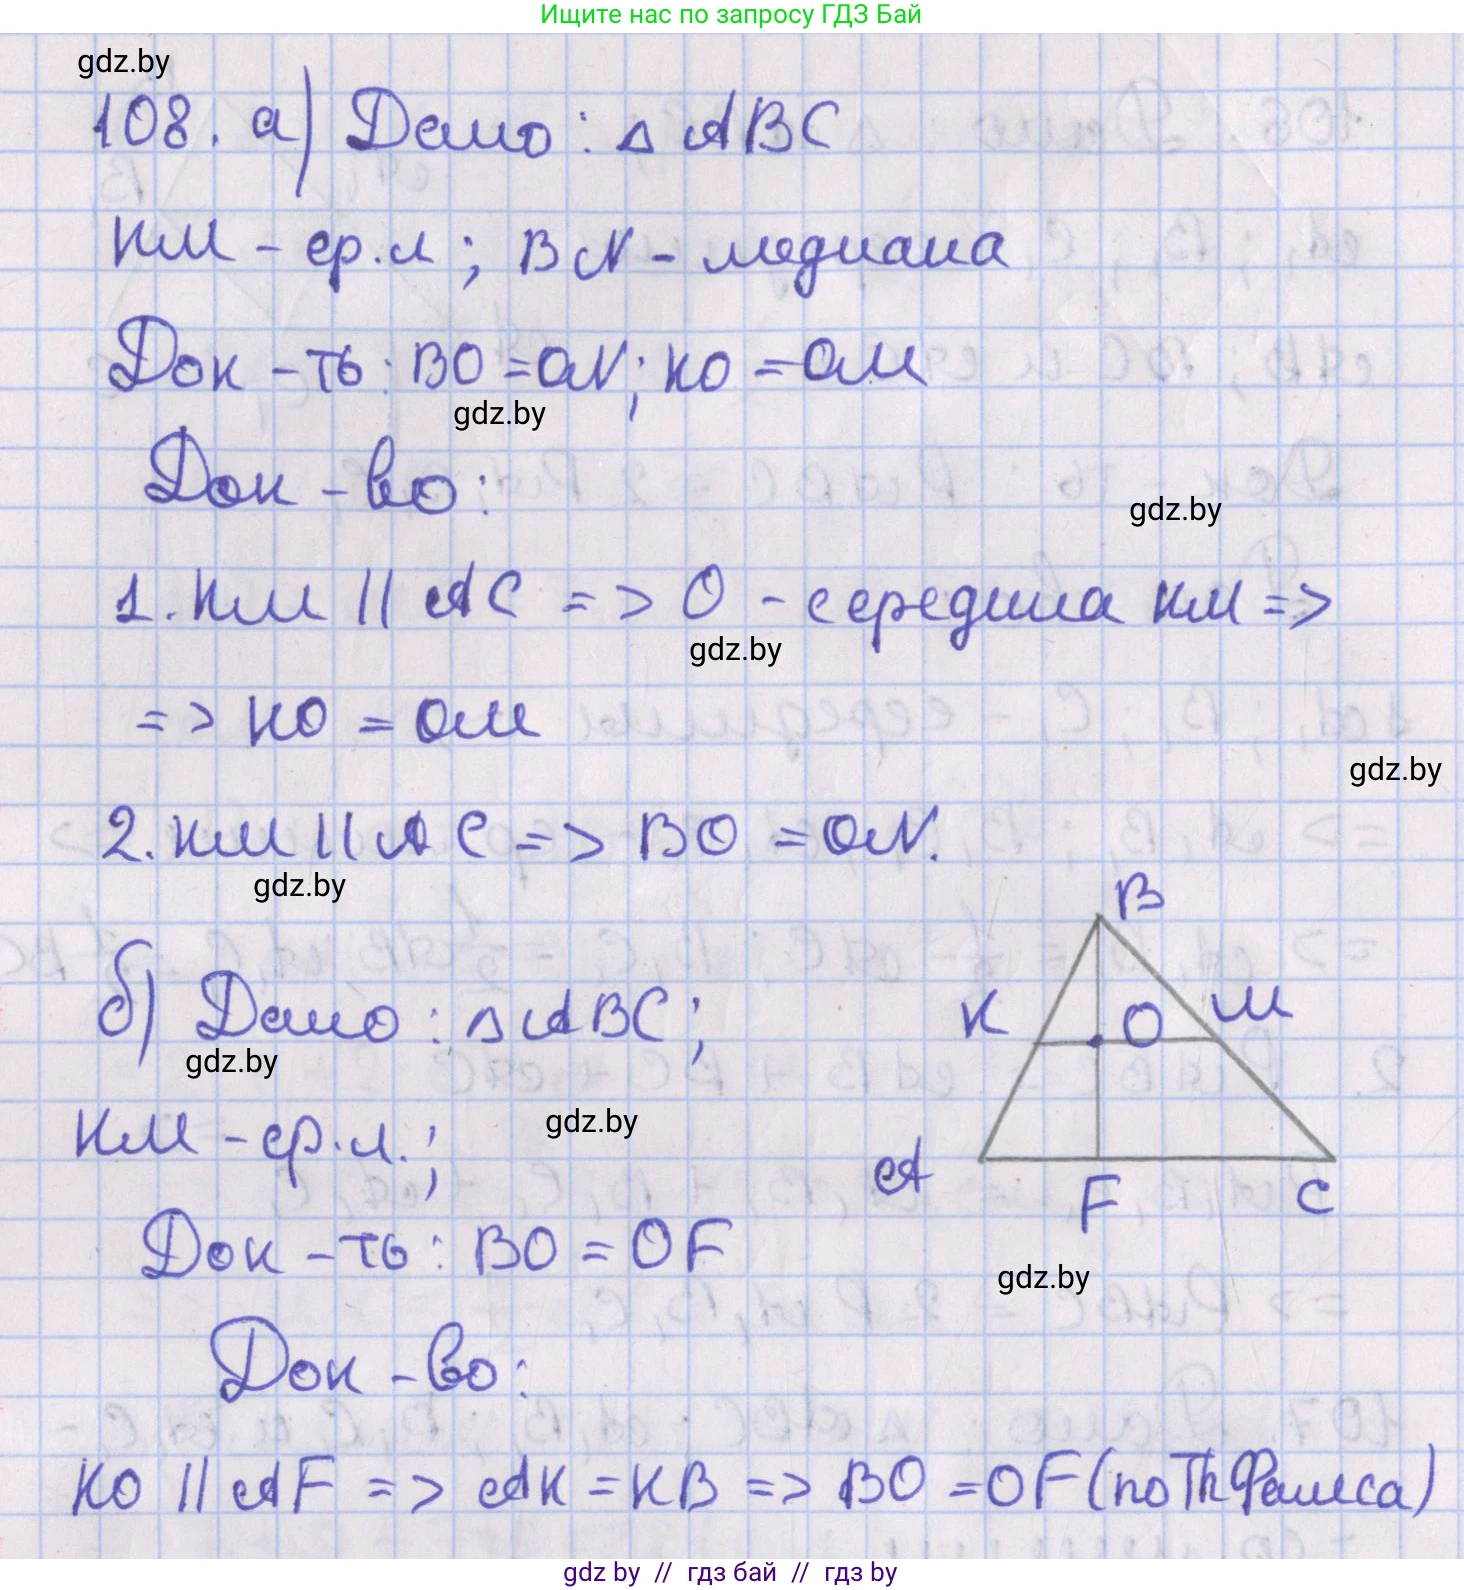 Ищите нас по запросу ГДЗ Бай
gdz.by
108. а) Дано: △ ABC
КМ - ср.л; BN - медиана
Док-ть: BO = ON; KO = OM
gdz.by
Док-во:
gdz.by
1. КМ || AC => O - середина КМ =>
gdz.by
=> KO = OM
gdz.by
2. КМ || AC => BO = ON.
gdz.by
B
б) Дано: △ ABC;
K O M
gdz.by
КМ - ср.л.;
gdz.by
A F C
Док-ть: BO = OF
gdz.by
Док-во:
KO || AF => AK = KB => BO = OF (по Th Фалеса)
gdz by // гдз бай // гдз by